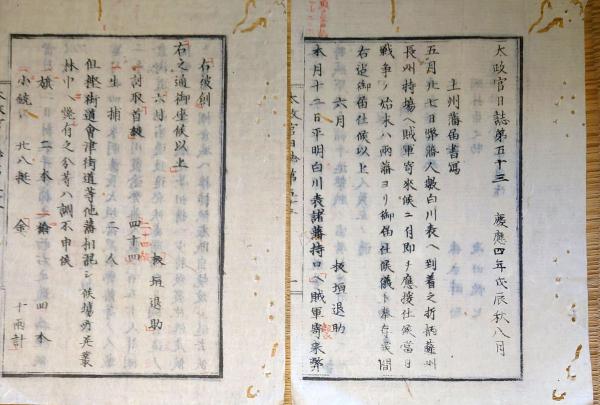 太政官日誌第五十三　慶應四年戊辰秋八月
土州藩届書寫
五月廿七日弊藩人數白川表へ到着之折柄薩州
長州持場へ賊軍寄来候ニ付即チ應接仕候當日
戦争ノ始末ハ兩藩ヨリ御届仕候儀ト奉存候間
右迄御届仕候以上
六月　板垣退助
本月十二日平明白川表諸藩持口へ賊軍寄来弊
右被創
右之通御座候以上
六月　板垣退助
一討取首級　四十四
一生捕　二人
但棚倉街道會津街道等他藩相混シ候場所是叢
林中ヘ残有之分等ハ調不申候
一旗　二本　一槍　四本
一小銃　北八挺　一金　十両計
太政官日誌第五十三